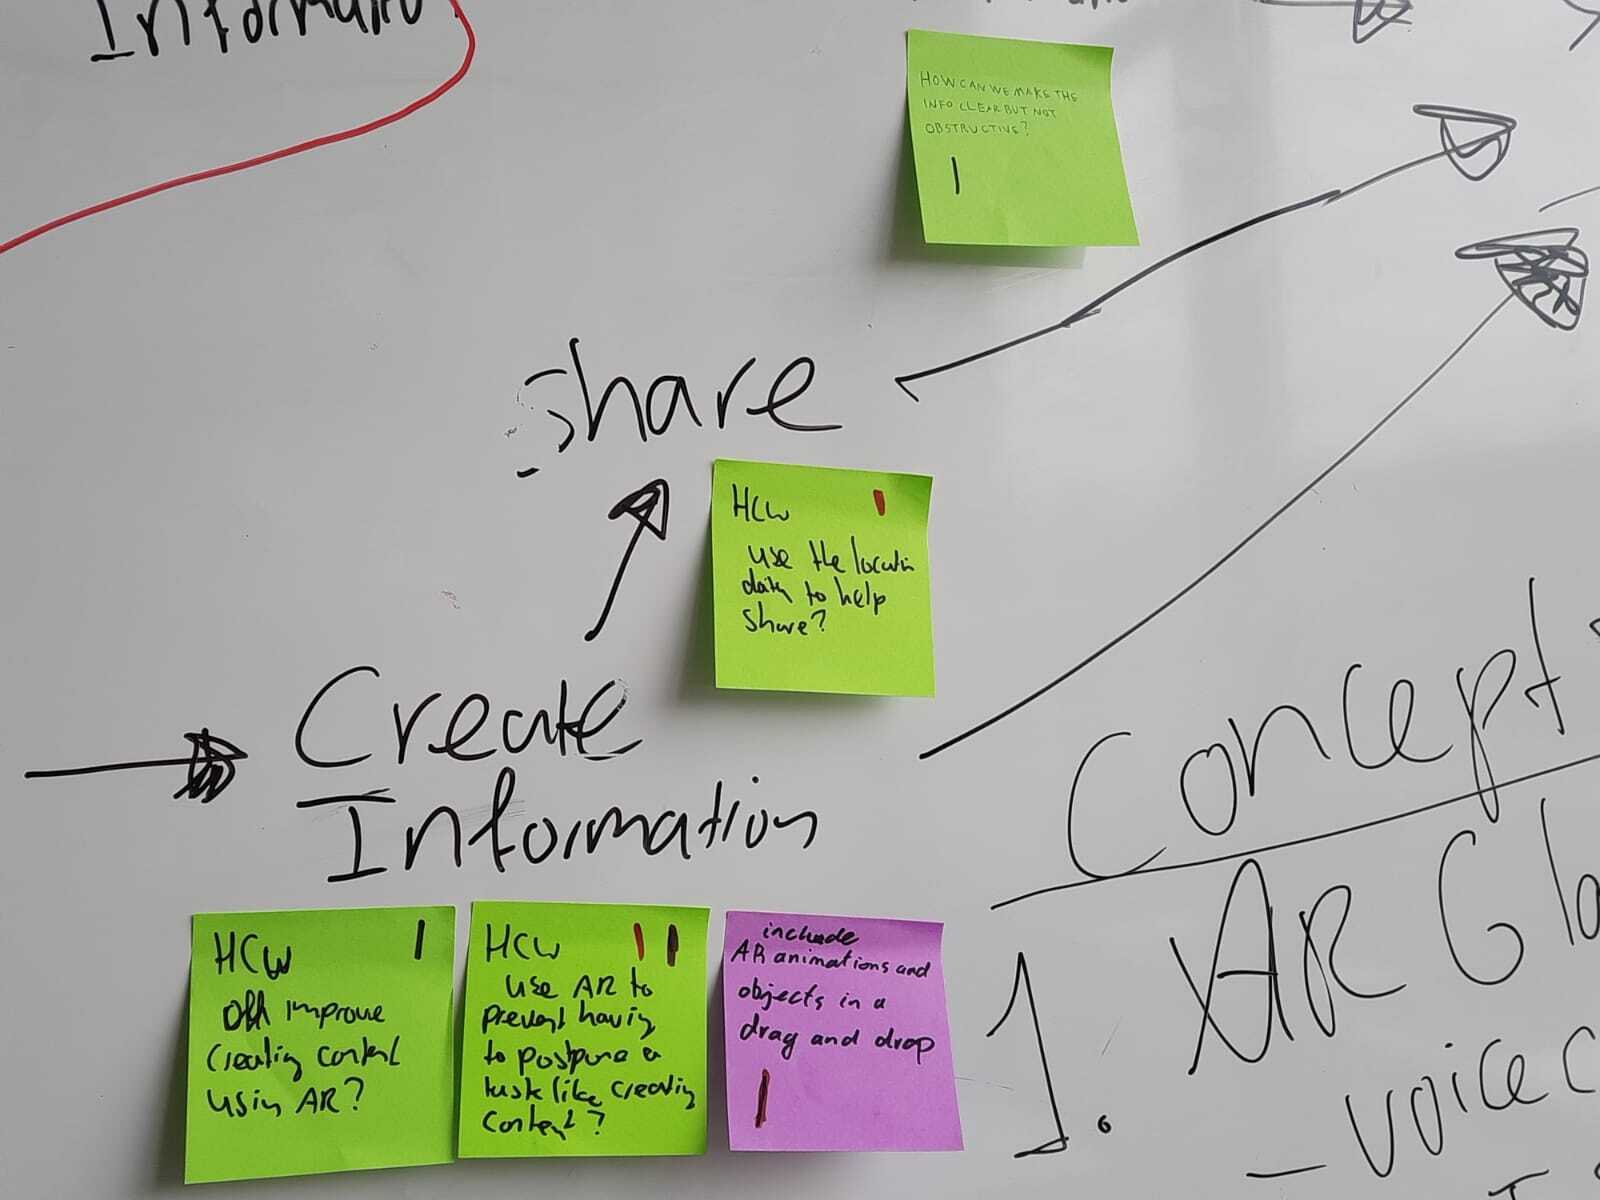 Informatio
HOW CAN WE MAKE THE
INFO CLEAR BUT NOT
OBSTRUCTIVE?
Share
HCW
use the location
data to help
share?
Create
Information
HCW
improve
creating content
using AR?
HCW
use AR to
prevent having
to postpone a
task like creating
content?
include
AR animations and
objects in a
drag and drop
Concept
1. AR Gla
- voice c